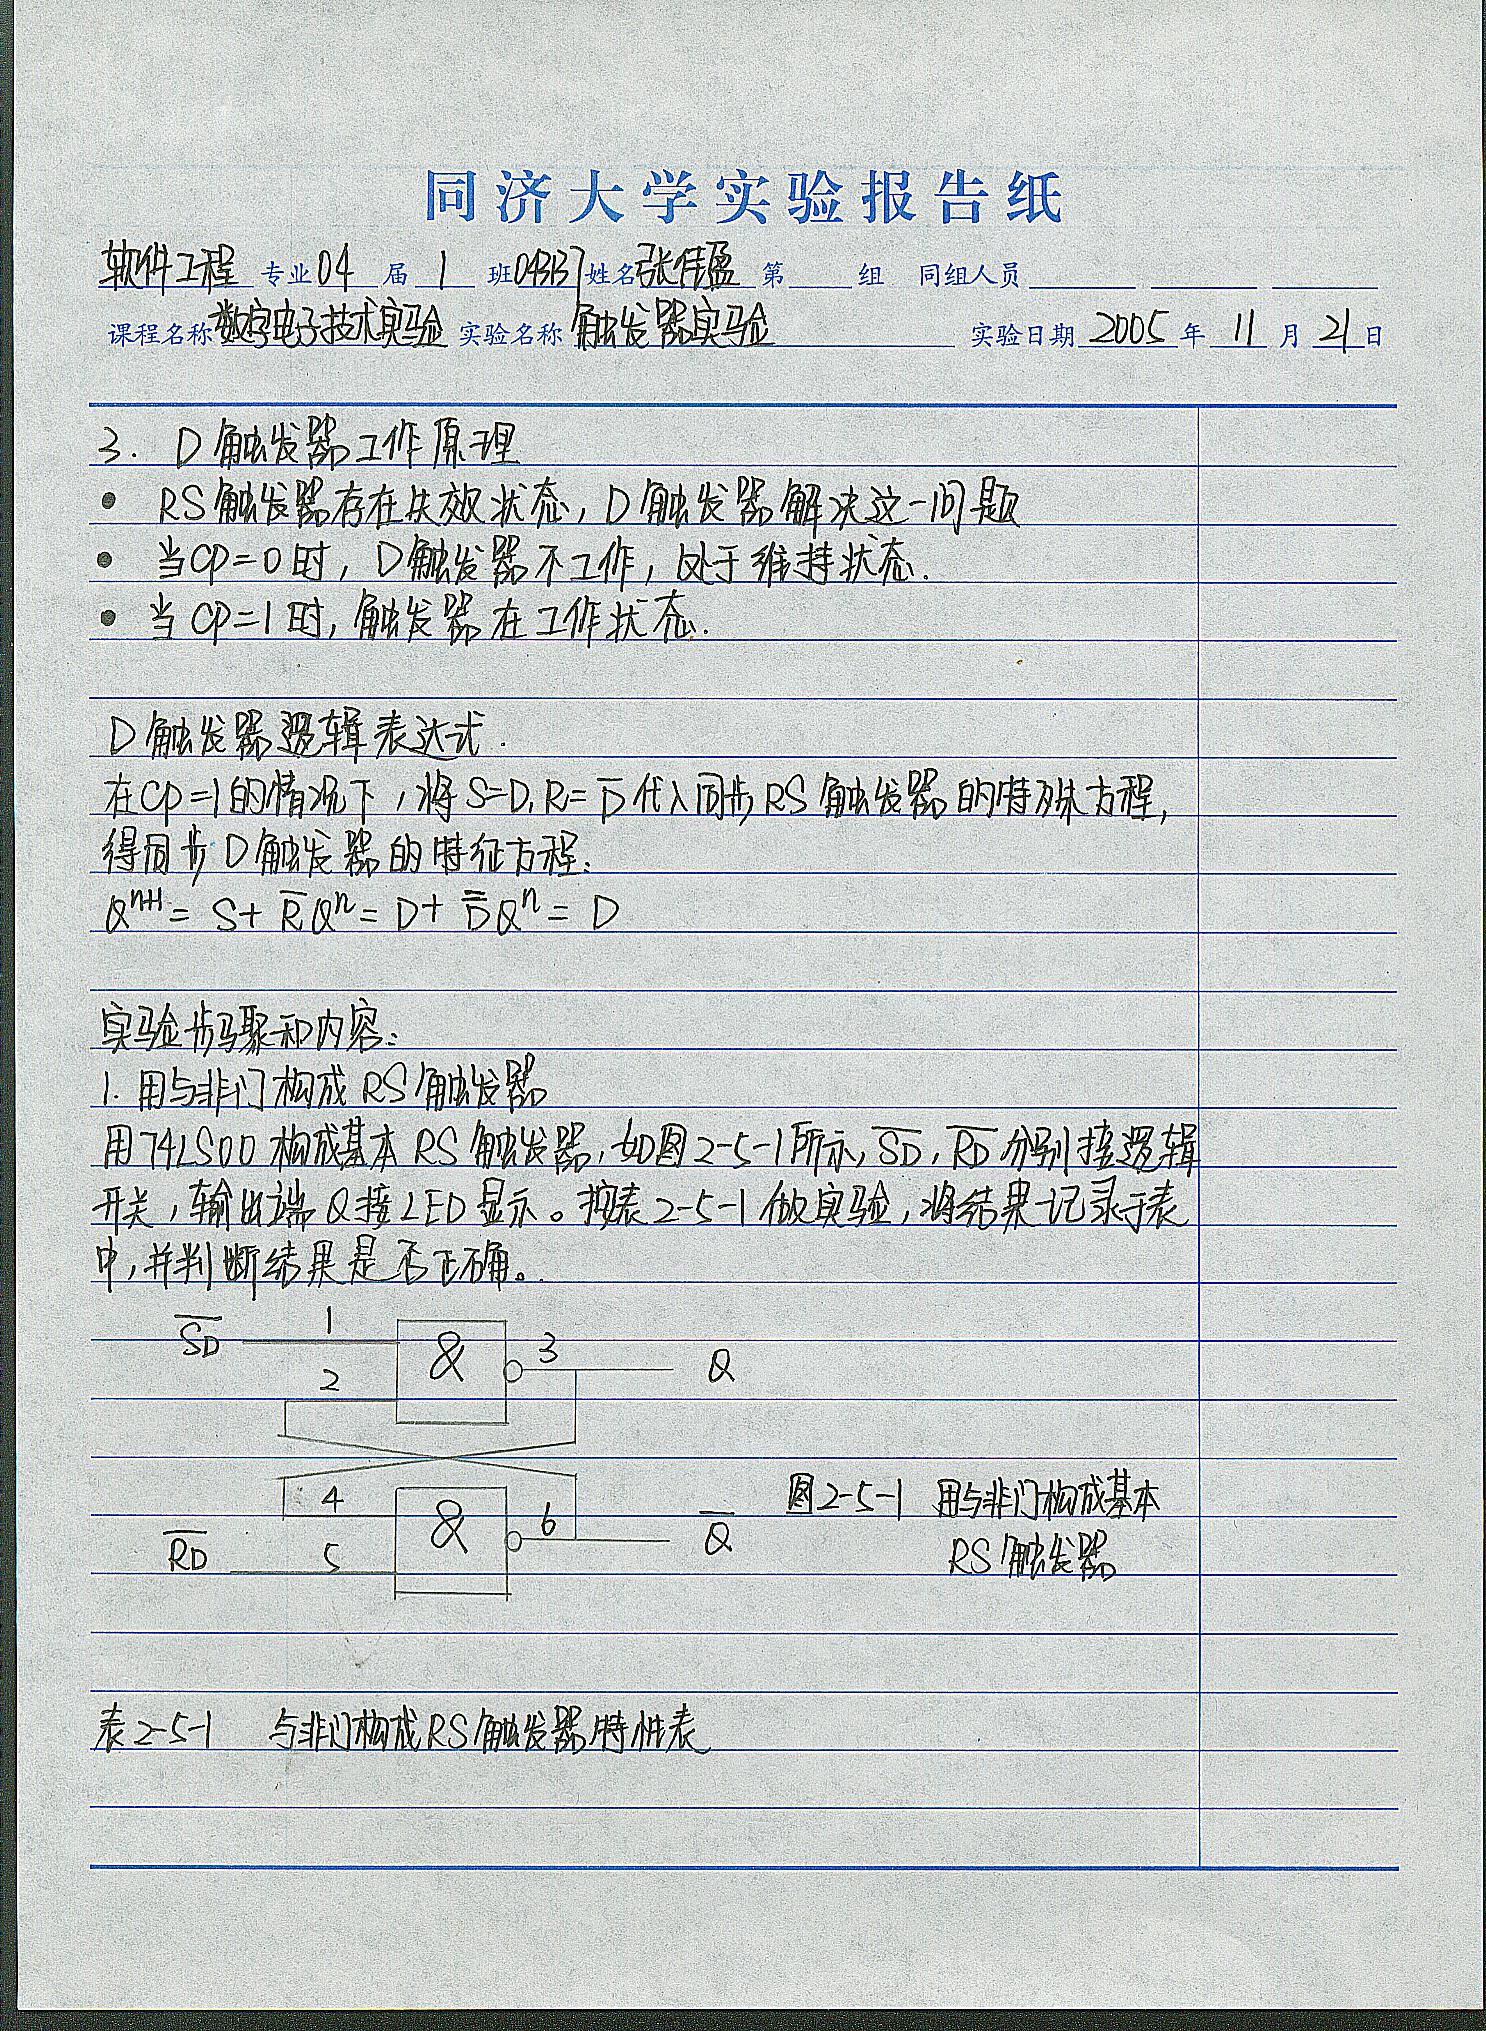 同济大学实验报告纸
软件工程 专业 04 届 1 班 043137 姓名 张伟盈 第 组 同组人员
课程名称 数字电子技术实验 实验名称 触发器实验 实验日期 2005 年 11 月 21 日
3. D触发器工作原理
• RS触发器存在失效状态, D触发器解决这一问题
• 当CP=0时, D触发器不工作, 处于维持状态.
• 当CP=1时, 触发器在工作状态.
D触发器逻辑表达式.
在CP=1的情况下, 将S=D, R=D̅代入同步RS触发器的特殊方程,
得同步D触发器的特征方程:
Qⁿ⁺¹ = S + R̅Qⁿ = D + D̿Qⁿ = D
实验步骤和内容:
1. 用与非门构成RS触发器
用74LS00构成基本RS触发器, 如图2-5-1所示, S̅D̅, R̅D̅分别接逻辑
开关, 输出端Q接LED显示。按表2-5-1做实验, 将结果记录于表
中, 并判断结果是否正确。
S̅D̅ 1 & 3 Q
2
4 图2-5-1 用与非门构成基本
R̅D̅ 5 & 6 Q̅ RS触发器
表2-5-1 与非门构成RS触发器特性表